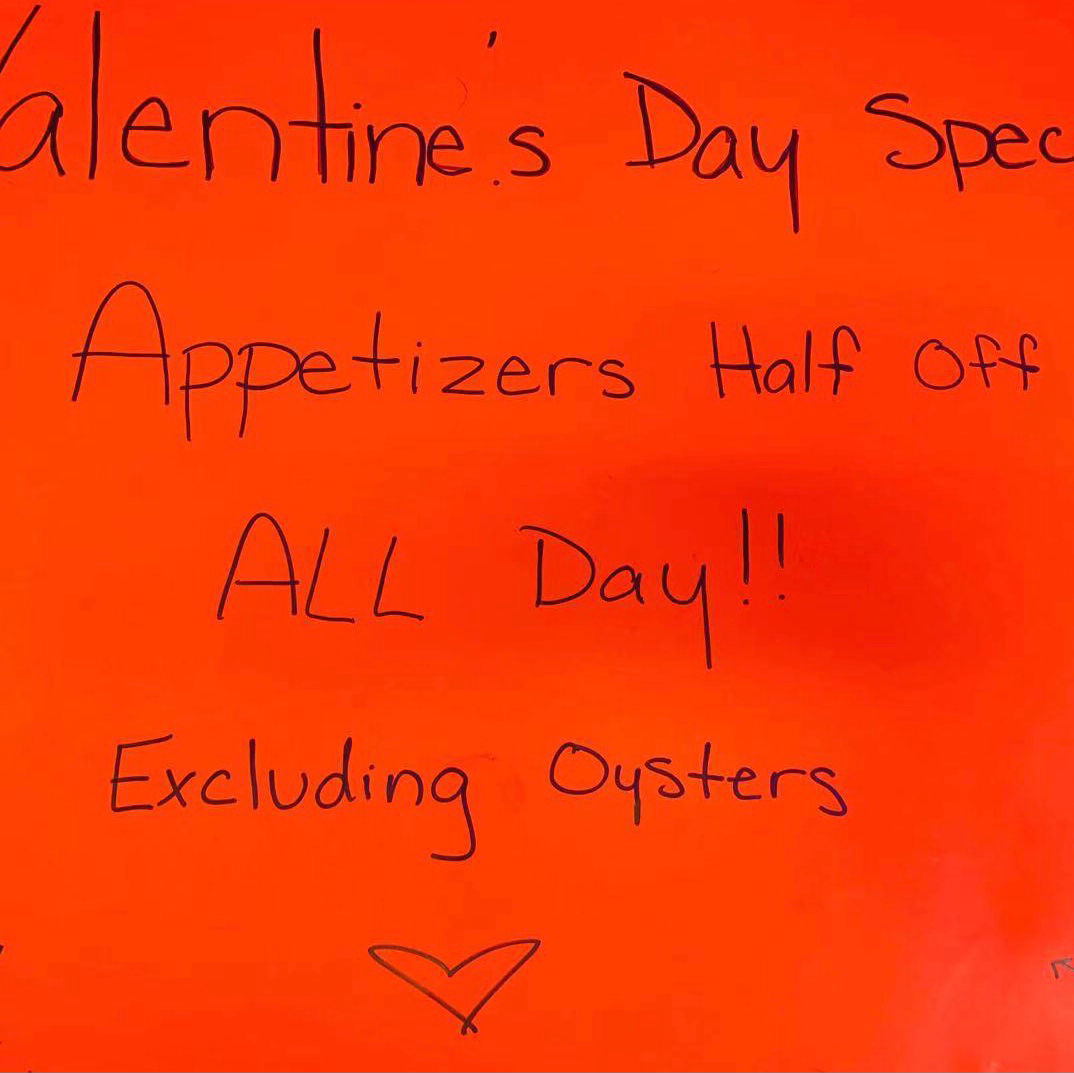 Valentine's Day Spec
Appetizers Half Off
ALL Day!!
Excluding Oysters